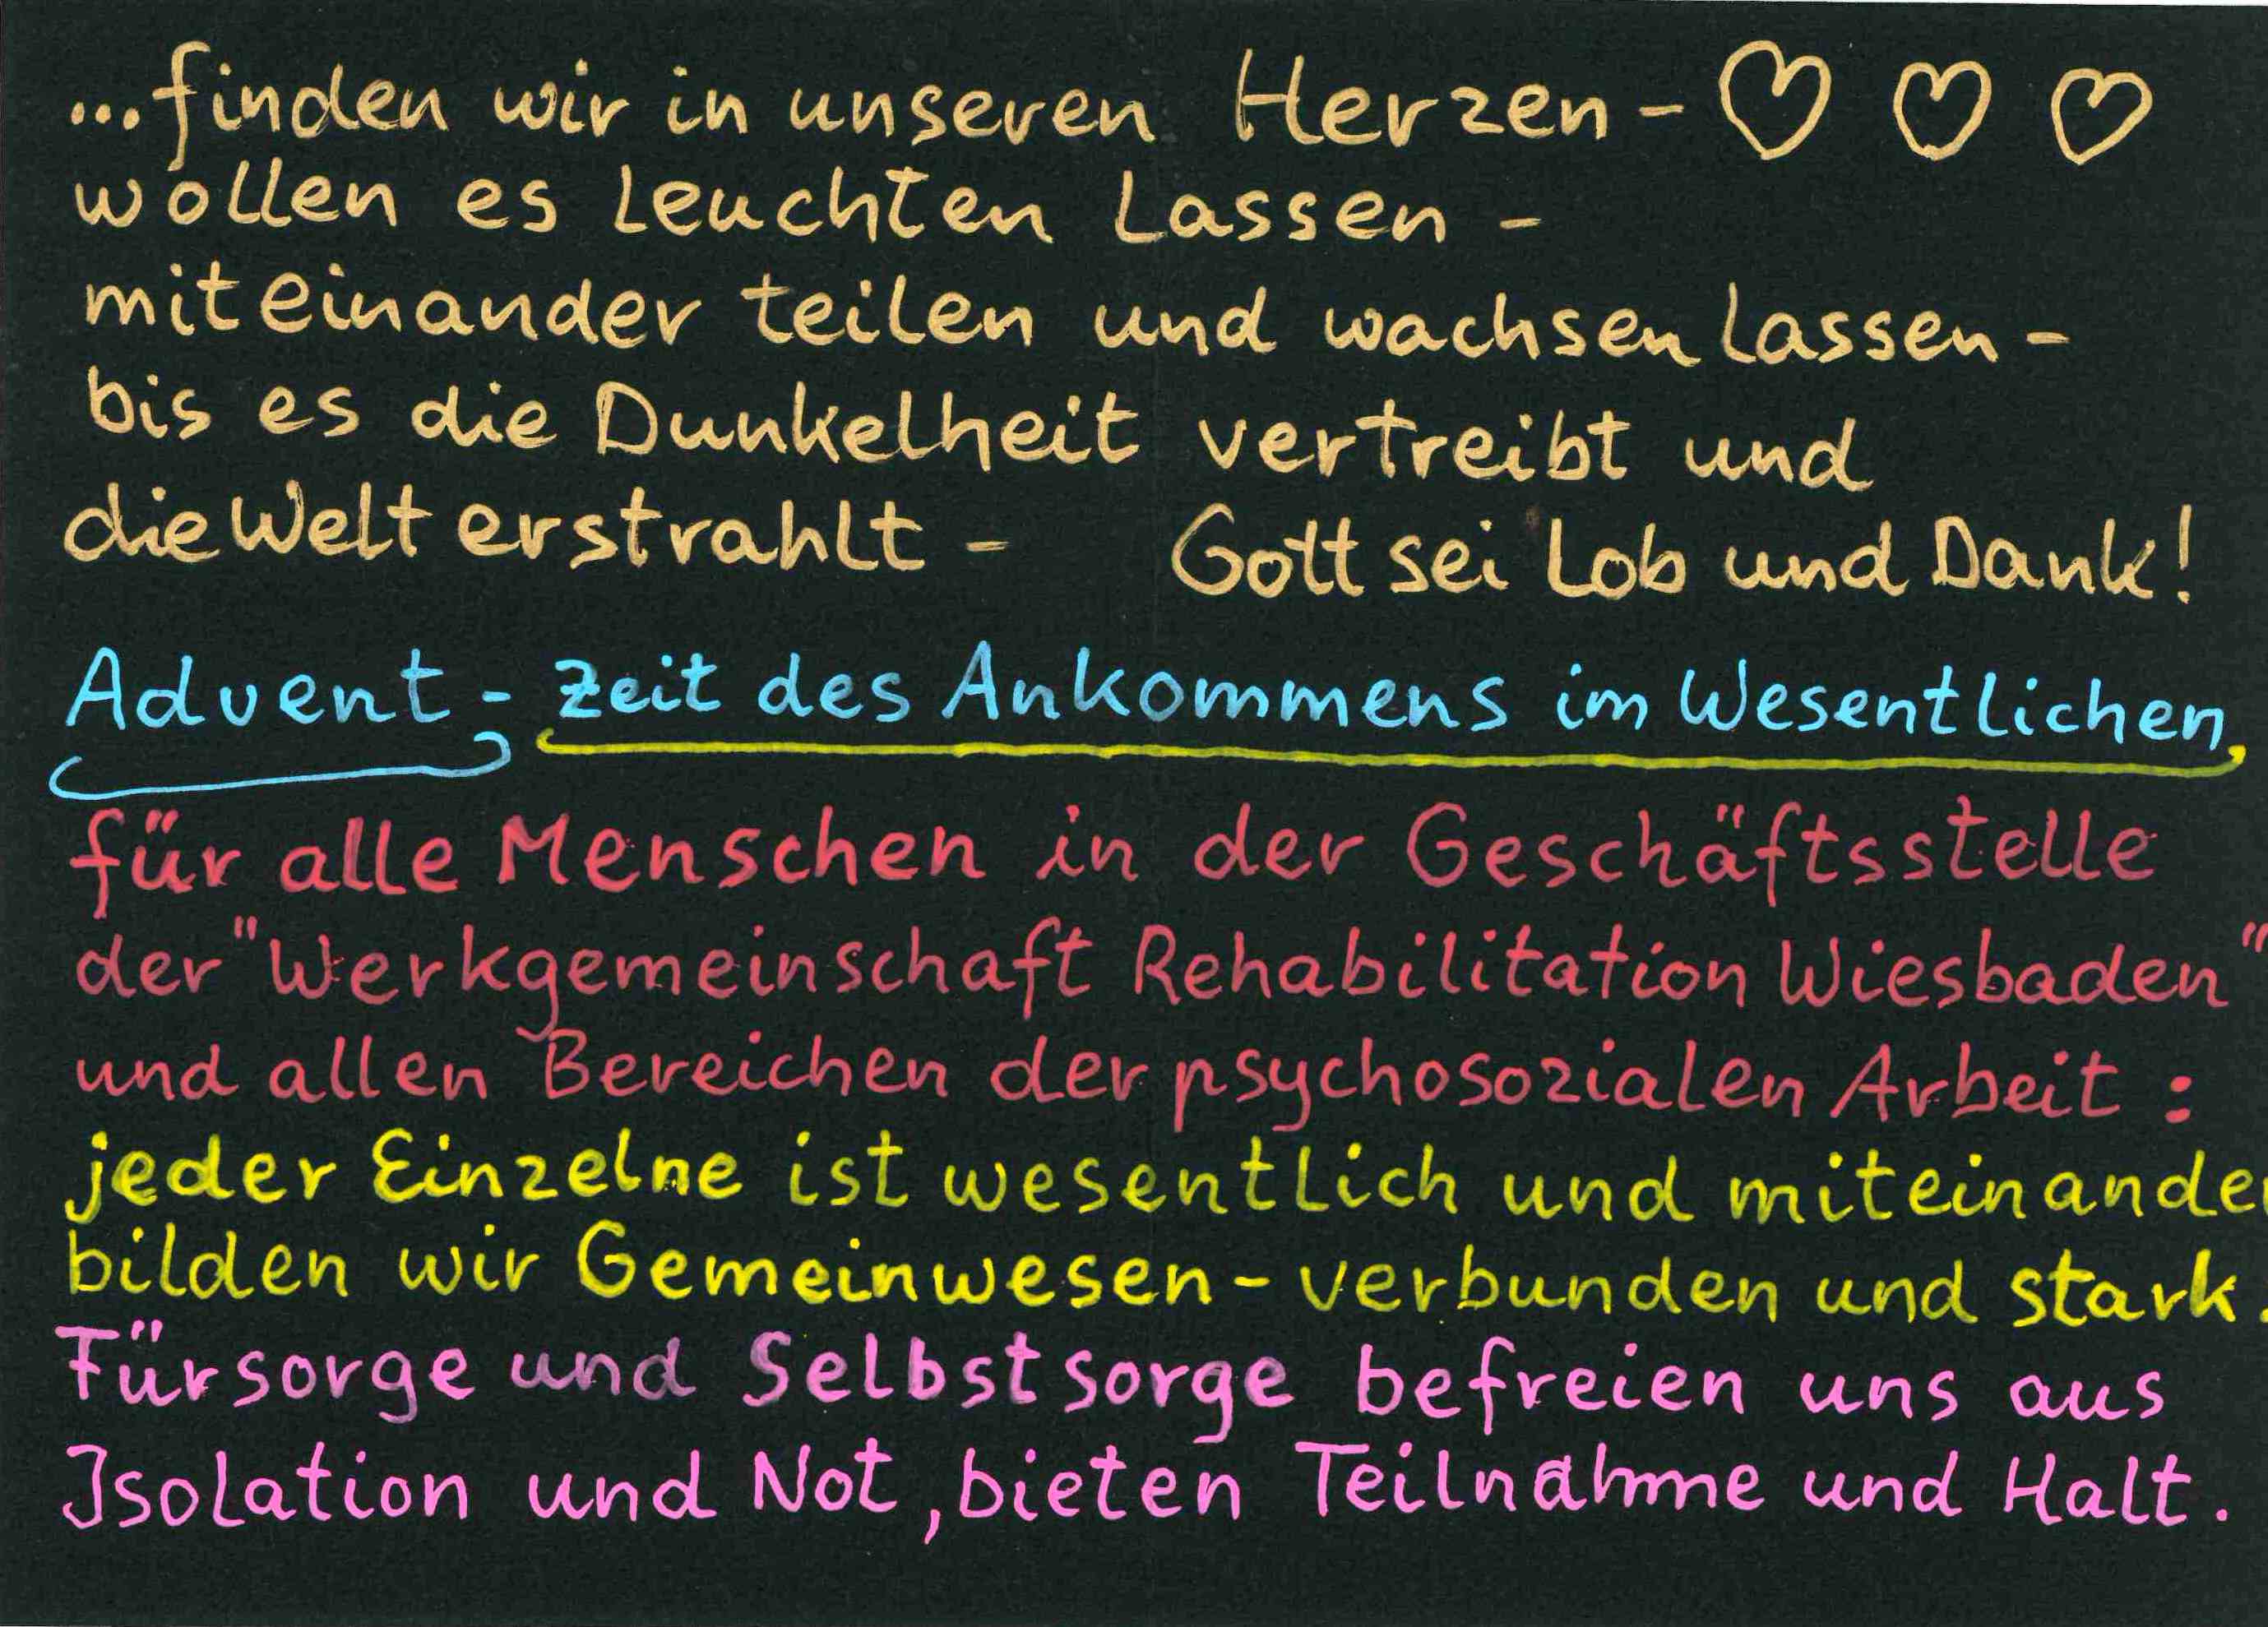 ...finden wir in unseren Herzen - ♡ ♡ ♡
wollen es leuchten lassen -
miteinander teilen und wachsen lassen -
bis es die Dunkelheit vertreibt und
die Welt erstrahlt - Gott sei Lob und Dank!
Advent - Zeit des Ankommens im Wesentlichen,
für alle Menschen in der Geschäftsstelle
der "Werkgemeinschaft Rehabilitation Wiesbaden"
und allen Bereichen der psychosozialen Arbeit:
jeder Einzelne ist wesentlich und miteinander
bilden wir Gemeinwesen - verbunden und stark.
Fürsorge und Selbstsorge befreien uns aus
Isolation und Not, bieten Teilnahme und Halt.